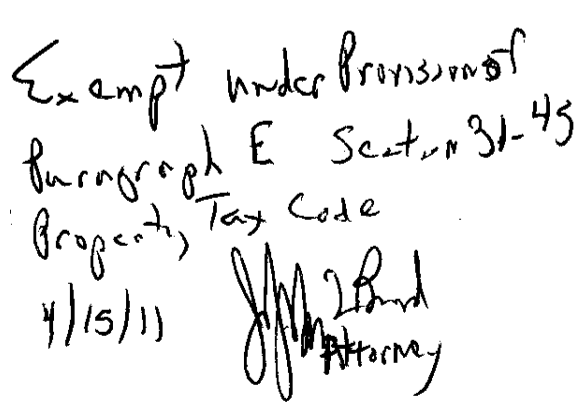 Exempt under Provision of
Paragraph E Section 31-45
Property Tax Code
4/15/11
Attorney